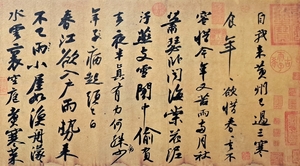 自我來黃州已過三寒
食年〻欲惜春〻去不
容惜今年又苦雨兩月秋
蕭瑟卧聞海棠花泥
汙燕支雪闇中偷負
去夜半真有力何殊少
年子病起頭已白
春江欲入戶雨勢來
不已雨小屋如漁舟濛〻
水雲裏空庖煮寒菜